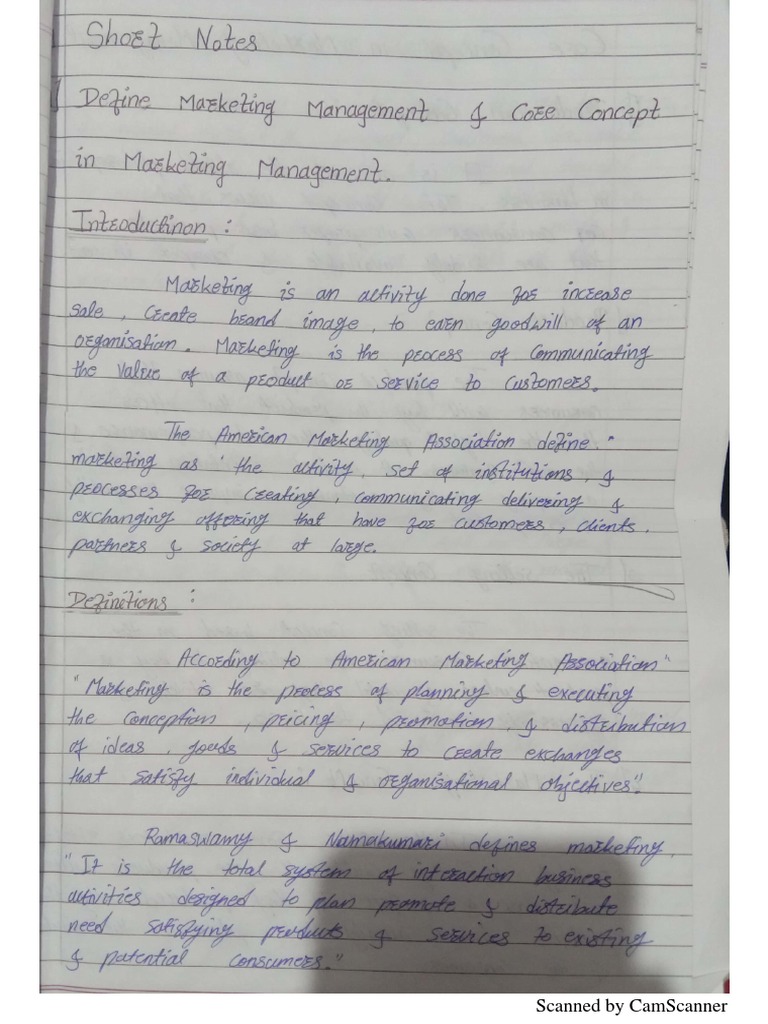 Short Notes
Define Marketing Management & Core Concept
in Marketing Management.
Introductinon :
Marketing is an activity done for increase
sale, create brand image, to earn goodwill of an
organisation. Marketing is the process of communicating
the value of a product or service to customers.
The American Marketing Association define "
marketing as 'the activity, set of institutions, &
processes for creating, communicating delivering &
exchanging offering that have for customers, clients,
partners & society at large.
Definitions :
According to American Marketing Association"
"Marketing is the process of planning & executing
the conception, pricing, promotion, & distribution
of ideas, goods & services to create exchanges
that satisfy individual & organisational objectives".
Ramaswamy & Namakumari defines marketing,
"It is the total system of interaction business
activities designed to plan promote & distribute
need satisfying products & services to existing
& potential consumers."
Scanned by CamScanner